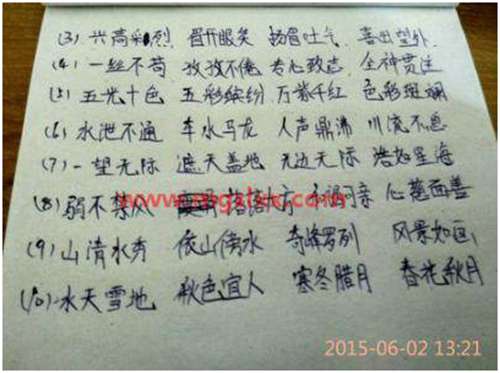 (3) 兴高彩烈 眉开眼笑 扬眉吐气 喜出望外
(4) 一丝不苟 孜孜不倦 专心致志 全神贯注
(5) 五光十色 五彩缤纷 万紫千红 色彩斑斓
(6) 水泄不通 车水马龙 人声鼎沸 川流不息
(7) 一望无际 遮天盖地 无边无际 浩如星海
(8) 弱不禁风 落落大方 和蔼可亲 心慈面善
(9) 山清水秀 依山傍水 奇峰罗列 风景如画
(10) 水天雪地 秋色宜人 寒冬腊月 春花秋月
2015-06-02 13:21